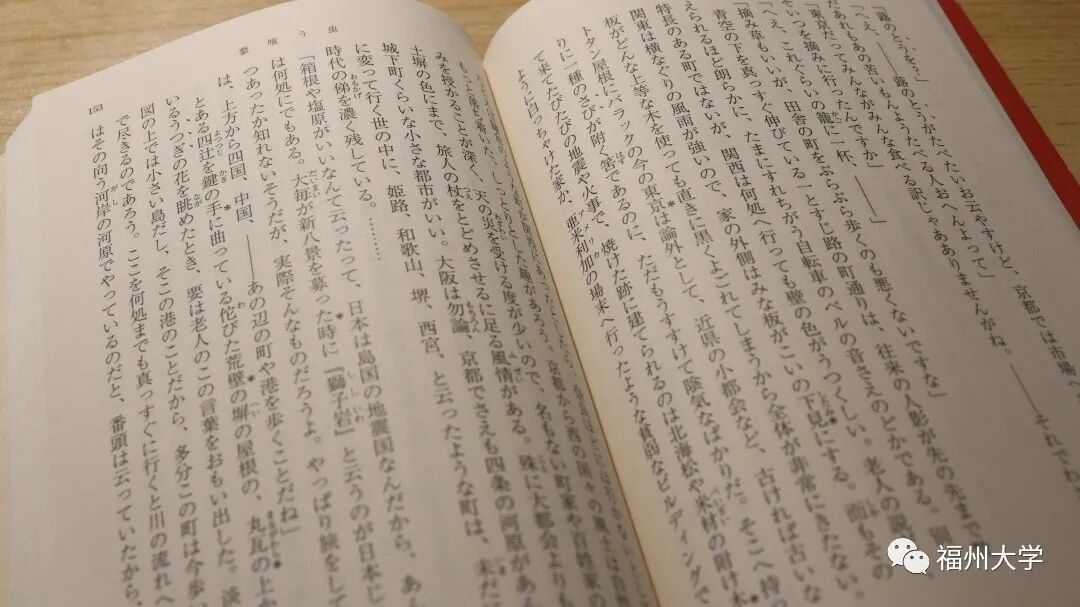 「蕗のとうを？」
「へえ、――蕗のとうがたべたいお云やすけど、京都では市場へ
だあれもあの苦いもんようたべる人おへんよって」
「東京だってみんながみんな食べる訳じゃありませんがね。――それでわ
そいつを摘みに行ったんですか」
「へえ、これくらいの籠に一杯、――」
「摘み草もいいが、田舎の町をぶらぶら歩くのも悪くないですな」
青空の下を真っすぐ伸びている一とすじ路の町通りは、往来の人影が先の先まで
えられるほど朗らかに、たまにすれちがう自転車のベルの音さえのどかである。別
特長のある町ではないが、関西は何処へ行っても壁の色がうつくしい。老人の説
関東は横なぐりの風雨が強いので、家の外側はみな板がこいの下見にする。而もその
板がどんな上等な木を使っても直きに黒くよごれてしまうから全体が非常にきたない。
トタン屋根にバラックの今の東京は論外として、近県の小都会など、古ければ古いな
りに一種のさびが附く筈であるのに、ただもうすすけて陰気なばかりだ。そこへ持っ
て来てたびたびの地震や火事で、焼けた跡に建てられるのは北海松や米材の附け木
ように白っちゃけた家か、亜米利加の場末へ行ったような貧弱なビルディングで
みを授かることが深く、天の災を受ける度が少いので、名もない町家や百姓家の
土塀の色にまで、旅人の杖をとどめさせるに足る風情がある。殊に大都会よりも
城下町くらいな小さな都市がいい。大阪は勿論、京都でさえも四条の河原があん
に変って行く世の中に、姫路、和歌山、堺、西宮、と云ったような町は、未だに
時代の俤を濃く残している。………
「箱根や塩原がいいなんて云ったって、日本は島国の地震国なんだから、あん
は何処にでもある。大毎が新八景を募った時に『獅子岩』と云うのが日本じ
つあったか知れないそうだが、実際そんなものだろうよ。やっぱり旅して
は、上方から四国、中国、――あの辺の町や港を歩くことだね」
とある四辻を鍵の手に曲っている侘びた荒壁の塀の屋根の、丸瓦の上か
いるうつぎの花を眺めたとき、要は老人のこの言葉をおもい出した。淡
図の上では小さい島だし、そこの港のことだから、多分この町は今歩い
で尽きるのであろう。ここを何処までも真っすぐに行くと川の流れへ
はその向う河岸の河原でやっているのだと、番頭は云っていたから、
蓼喰う虫
153
福州大学